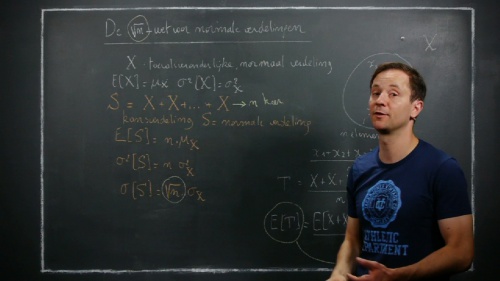 De √n-wet voor normale verdelingen
X toevalsveranderlijke, normaal verdeling
E[X] = μx σ²[X] = σ²x
S = X + X + ... + X → n keer
kansverdeling S = normale verdeling
E[S] = n·μx
σ²[S] = n σ²x
σ(S) = √n σx
X
x₁+x₂+
T = X+X+
n
E[T] = E[X+X